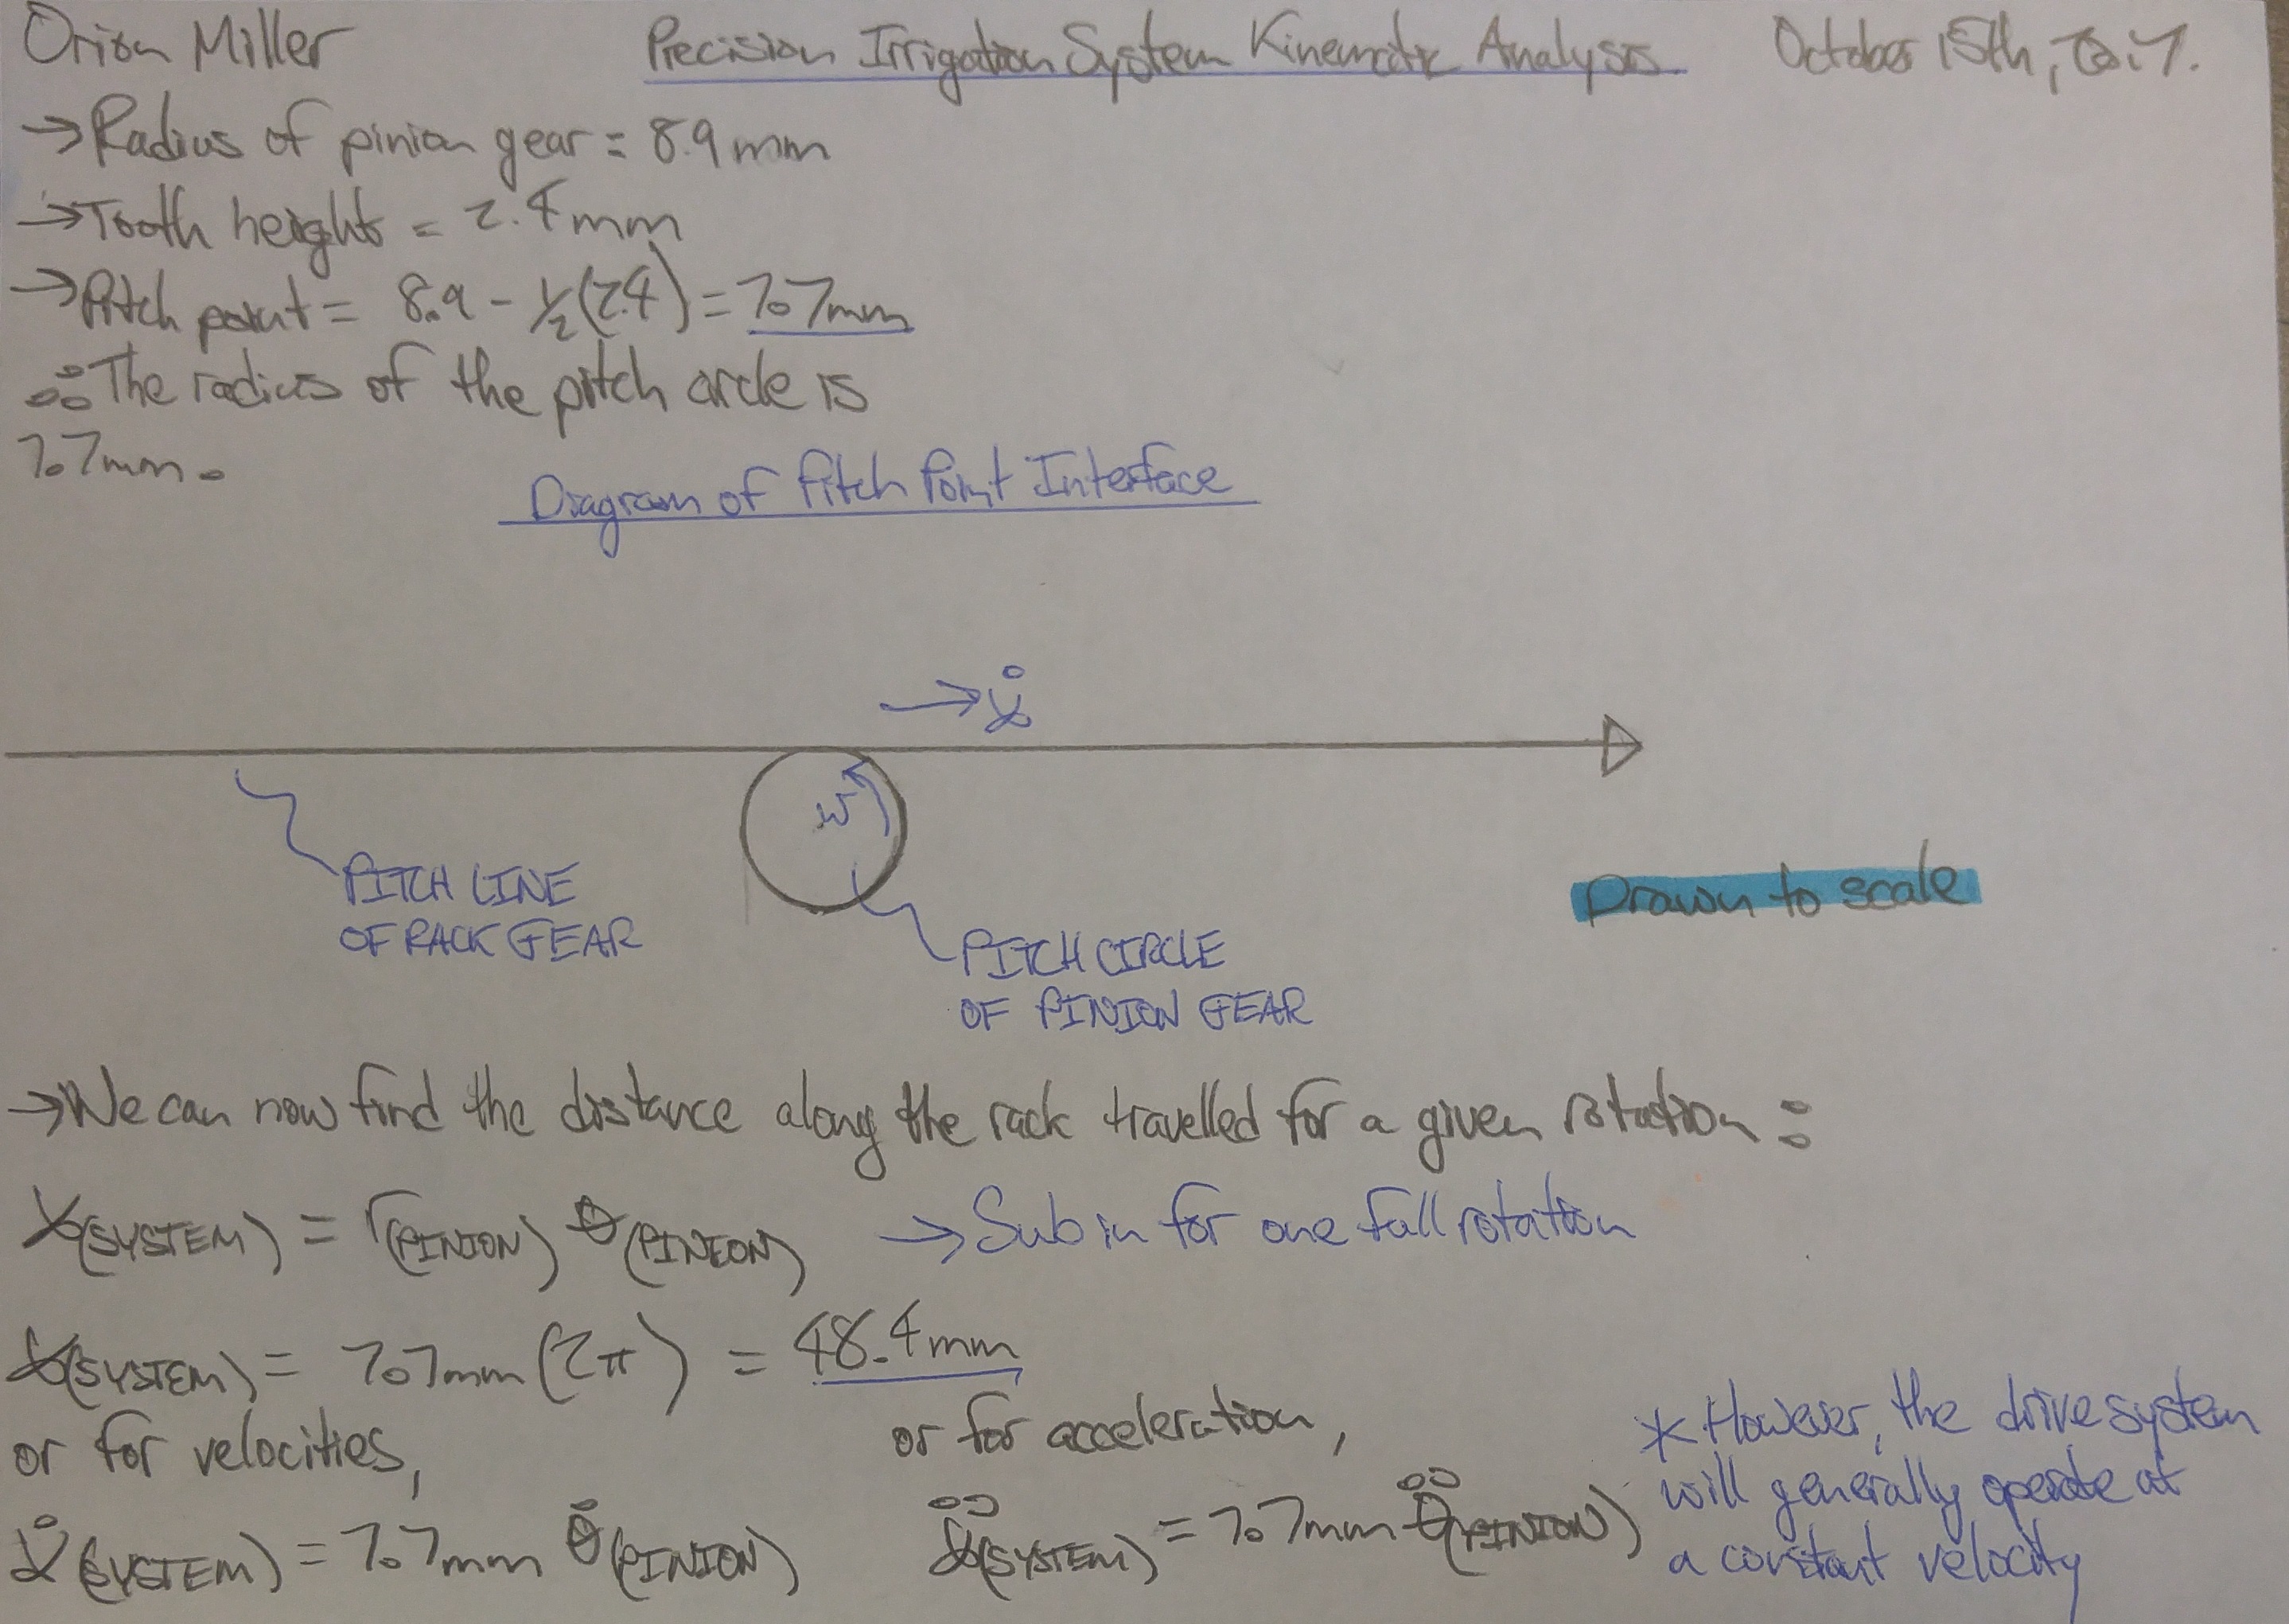 Orion Miller Precision Irrigation System Kinematic Analysis October 15th,
→ Radius of pinion gear = 8.9 mm
→ Tooth height = 2.4 mm
→ Pitch point = 8.9 - ½(2.4) = 7.7mm
∴ The radius of the pitch circle is
7.7mm.
Diagram of Pitch Point Interface
→ ẋ
ω
PITCH LINE
OF RACK GEAR
PITCH CIRCLE
OF PINION GEAR
Drawn to scale
→ We can now find the distance along the rack travelled for a given rotation:
x(SYSTEM) = r(PINION) θ(PINION) → Sub in for one full rotation
x(SYSTEM) = 7.7mm (2π) = 48.4mm
or for velocities,
ẋ(SYSTEM) = 7.7mm θ̇(PINION)
or for acceleration,
ẍ(SYSTEM) = 7.7mm θ̈(PINION)
* However, the drive system
will generally operate at
a constant velocity